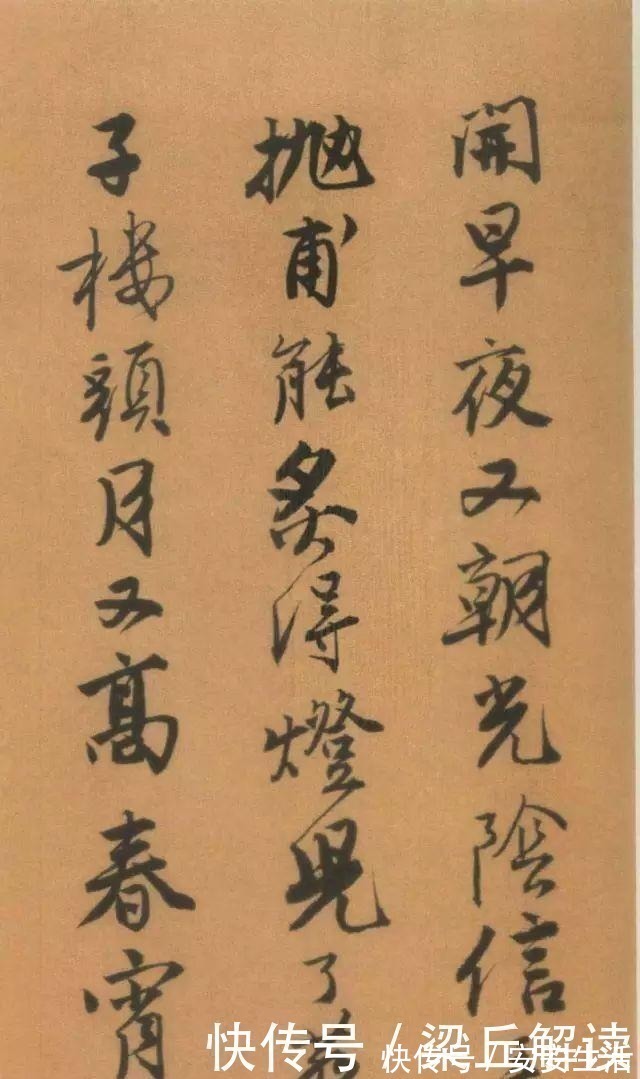 開早夜又朝光陰信
抛甫能炙得燈兒了
子樓頭月又高春宵
快传号 / 梁丘解读
快传号 /